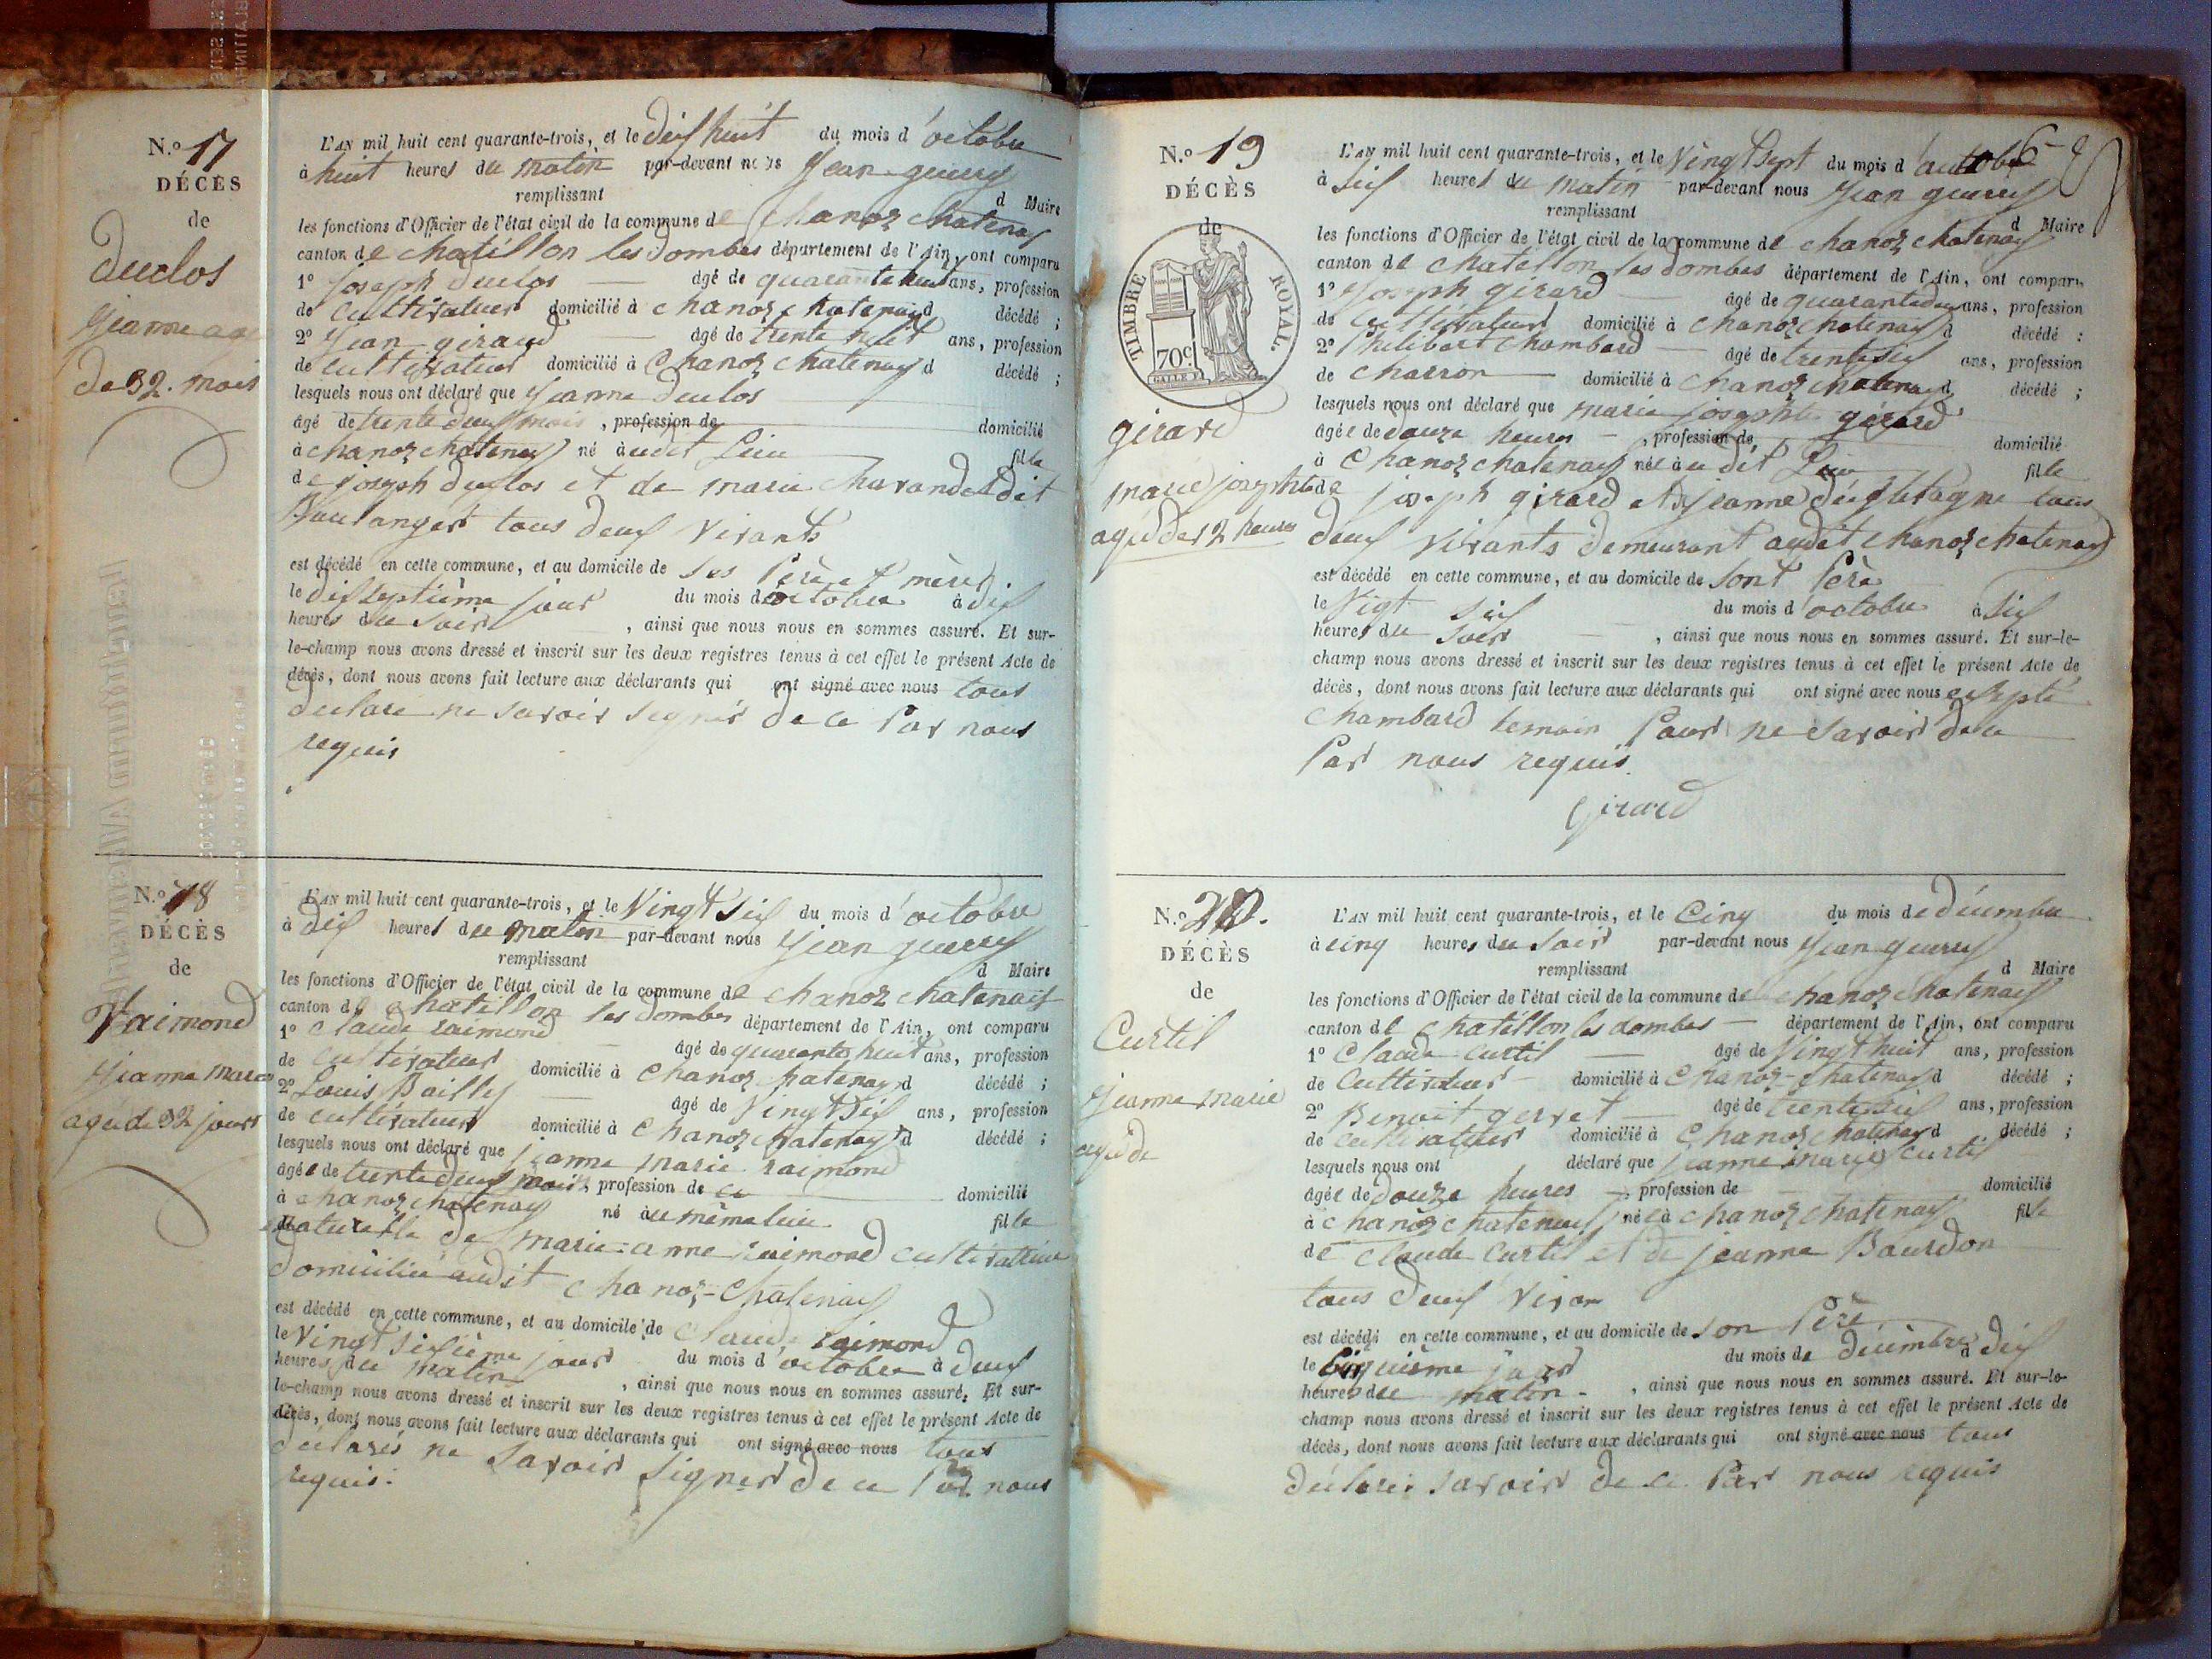 N.o 17
DÉCÈS
de
duclos
jeanne
de 32. mois
L'AN mil huit cent quarante-trois, et le dix huit du mois d'octobre
à huit heures du matin par-devant nous jean guerry
remplissant d Maire
les fonctions d'Officier de l'état civil de la commune de chanoz chatenay
canton de chatillon les dombes département de l'Ain, ont comparu
1º joseph duclos âgé de quarante huit ans, profession
de cultivateur domicilié à chanoz chatenay d décédé ;
2º jean girard âgé de trente huit ans, profession
de cultivateur domicilié à chanoz chatenay d décédé ;
lesquels nous ont déclaré que jeanne duclos
âgé de trente deux mois, profession de domicilié
à chanoz chatenay né audit Lieu fille
de joseph duclos et de marie charandet dit
Boulanger tous deux vivants
est décédé en cette commune, et au domicile de ses Père et mère
le dix septième jour du mois d'octobre à dix
heures du soir, ainsi que nous nous en sommes assuré. Et sur-
le-champ nous avons dressé et inscrit sur les deux registres tenus à cet effet le présent Acte de
décès, dont nous avons fait lecture aux déclarants qui ont signé avec nous tous
declaré ne savoir signer de ce Par nous
requis
N.o 18
DÉCÈS
de
raimond
jeanne marie
agée de 32 jours
L'AN mil huit cent quarante-trois, et le vingt six du mois d'octobre
à dix heures du matin par-devant nous jean guerry
remplissant d Maire
les fonctions d'Officier de l'état civil de la commune de chanoz chatenay
canton de chatillon les dombes département de l'Ain, ont comparu
1º claude raimond âgé de quarante huit ans, profession
de cultivateur domicilié à chanoz chatenay d décédé ;
2º Louis Bailly âgé de vingt six ans, profession
de cultivateur domicilié à chanoz chatenay d décédé ;
lesquels nous ont déclaré que jeanne marie raimond
âgée de trente deux profession de domicilié
à chanoz chatenay né au même lieu fille
naturelle de marie-anne raimond cultivatrice
domiciliée audit chanoz-chatenay
est décédé en cette commune, et au domicile de claude raimond
le vingt sixième jour du mois d'octobre à deux
heures du matin, ainsi que nous nous en sommes assuré. Et sur-
le-champ nous avons dressé et inscrit sur les deux registres tenus à cet effet le présent Acte de
décès, dont nous avons fait lecture aux déclarants qui ont signé avec nous tous
déclarés ne savoir signer de ce Par nous
requis.
6
N.o 19
DÉCÈS
de
TIMBRE ROYAL.
70c
girard
marie josephte
agée de 12 heures
L'AN mil huit cent quarante-trois, et le vingt sept du mois d'
à six heures du matin par-devant nous jean guerry
remplissant d Maire
les fonctions d'Officier de l'état civil de la commune de chanoz chatenay
canton de chatillon les dombes département de l'Ain, ont comparu
1º joseph girard âgé de quarante deux ans, profession
de cultivateur domicilié à chanoz chatenay d décédé :
2º Philibert chambard âgé de trente six ans, profession
de charron domicilié à chanoz chatenay d décédé ;
lesquels nous ont déclaré que marie josephte girard
âgée de douze heures, profession de domicilié
à chanoz chatenay née au dit Lieu fille
de joseph girard et de jeanne tous
deux vivants demeurant audit chanoz chatenay
est décédé en cette commune, et au domicile de sont Père
le vigt six du mois d'octobre à six
heures du soir, ainsi que nous nous en sommes assuré. Et sur-le-
champ nous avons dressé et inscrit sur les deux registres tenus à cet effet le présent Acte de
décès, dont nous avons fait lecture aux déclarants qui ont signé avec nous exepté
chambard temoin Pour ne savoir de ce
Par nous requis.
girard
N.o 20.
DÉCÈS
de
Curtil
jeanne marie
agée de
L'AN mil huit cent quarante-trois, et le cinq du mois de décembre
à cinq heures du soir par-devant nous jean guerry
remplissant d Maire
les fonctions d'Officier de l'état civil de la commune de chanoz chatenay
canton de chatillon les dombes département de l'Ain, ont comparu
1º Claude curtil âgé de vingt huit ans, profession
de cultivateur domicilié à chanoz-chatenay d décédé ;
2º Benoit gervet âgé de trente six ans, profession
de cultivateur domicilié à chanoz chatenay d décédé ;
lesquels nous ont déclaré que jeanne marie curtil
âgée de douze heures, profession de domicilié
à chanoz chatenay, née à chanoz chatenay fille
de claude curtil et de jeanne Bourdon
tous deux vivan
est décédé en cette commune, et au domicile de son Père
le cinquième jour du mois de décembre à dix
heures du matin, ainsi que nous nous en sommes assuré. Et sur-le-
champ nous avons dressé et inscrit sur les deux registres tenus à cet effet le présent Acte de
décès, dont nous avons fait lecture aux déclarants qui ont signé avec nous tous
déclaré savoir de ce Par nous requis